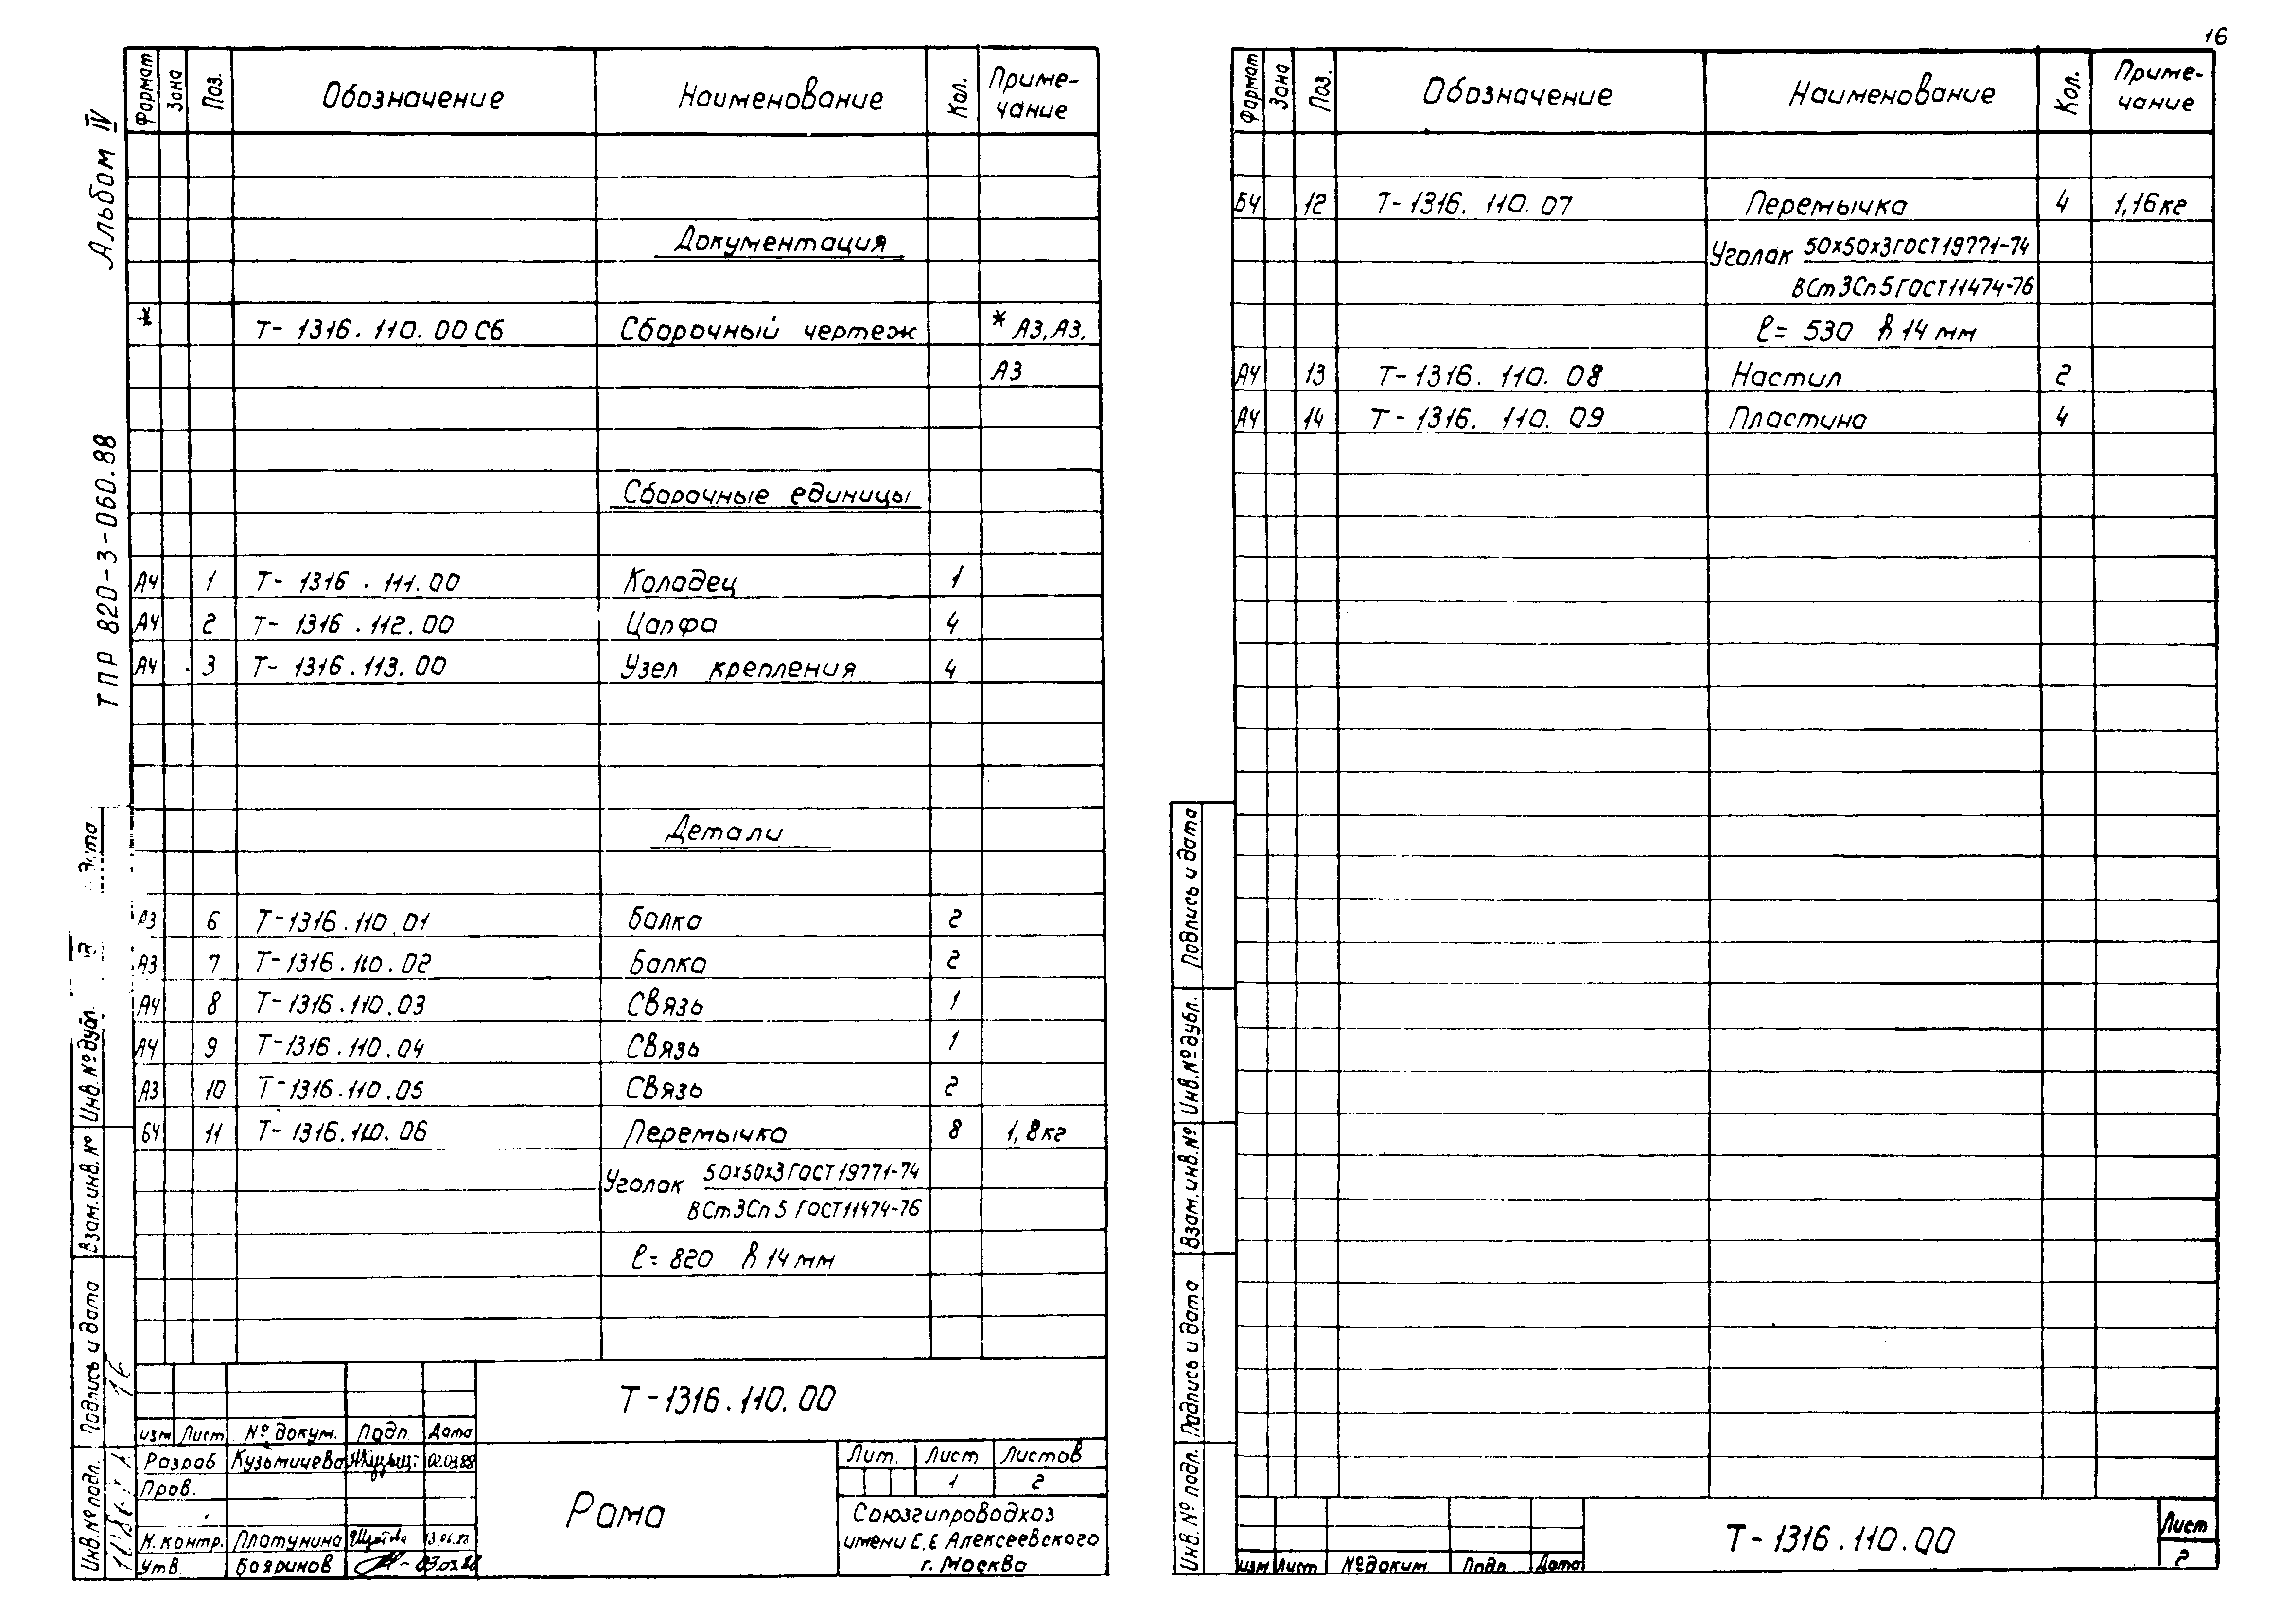 16
Альбом IV
ТПР 820-3-060.88
Формат Зона Поз. Обозначение Наименование Кол. Приме-
чание
Документация
* Т-1316.110.00 СБ Сборочный чертеж * А3, А3,
А3
Сборочные единицы
А4 1 Т-1316.111.00 Колодец 1
А4 2 Т-1316.112.00 Цапфа 4
А4 3 Т-1316.113.00 Узел крепления 4
Детали
А3 6 Т-1316.110.01 Балка 2
А3 7 Т-1316.110.02 Балка 2
А4 8 Т-1316.110.03 Связь 1
А4 9 Т-1316.110.04 Связь 1
А3 10 Т-1316.110.05 Связь 2
БЧ 11 Т-1316.110.06 Перемычка 8 1,8кг
Уголок 50х50х3 ГОСТ 19771-74
ВСт3Сп5 ГОСТ 11474-76
ℓ= 820 h 14 мм
Инв. № подл. Подпись и дата Взам. инв. № Инв. № дубл. дата
Т-1316.110.00
изм Лист № докум. Подп. Дата
Разраб Кузьмичева 02.03.88
Пров.
Н. контр. Платунина
Утв Бояринов 03.03.88
Рама
Лит. Лист Листов
1 2
Союзгипроводхоз
имени Е.Е Алексеевского
г. Москва
Формат Зона Поз. Обозначение Наименование Кол. Приме-
чание
БЧ 12 Т-1316.110.07 Перемычка 4 1,16кг
Уголок 50х50х3 ГОСТ 19771-74
ВСт3Сп5 ГОСТ 11474-76
ℓ= 530 h 14 мм
А4 13 Т-1316.110.08 Настил 2
А4 14 Т-1316.110.09 Пластина 4
Инв. № подл. Подпись и дата Взам. инв. № Инв. № дубл. Подпись и дата
изм Лист № докум. Подп Дата
Т-1316.110.00
Лист
2